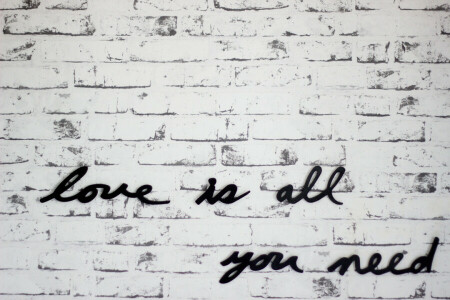 love is all
you need